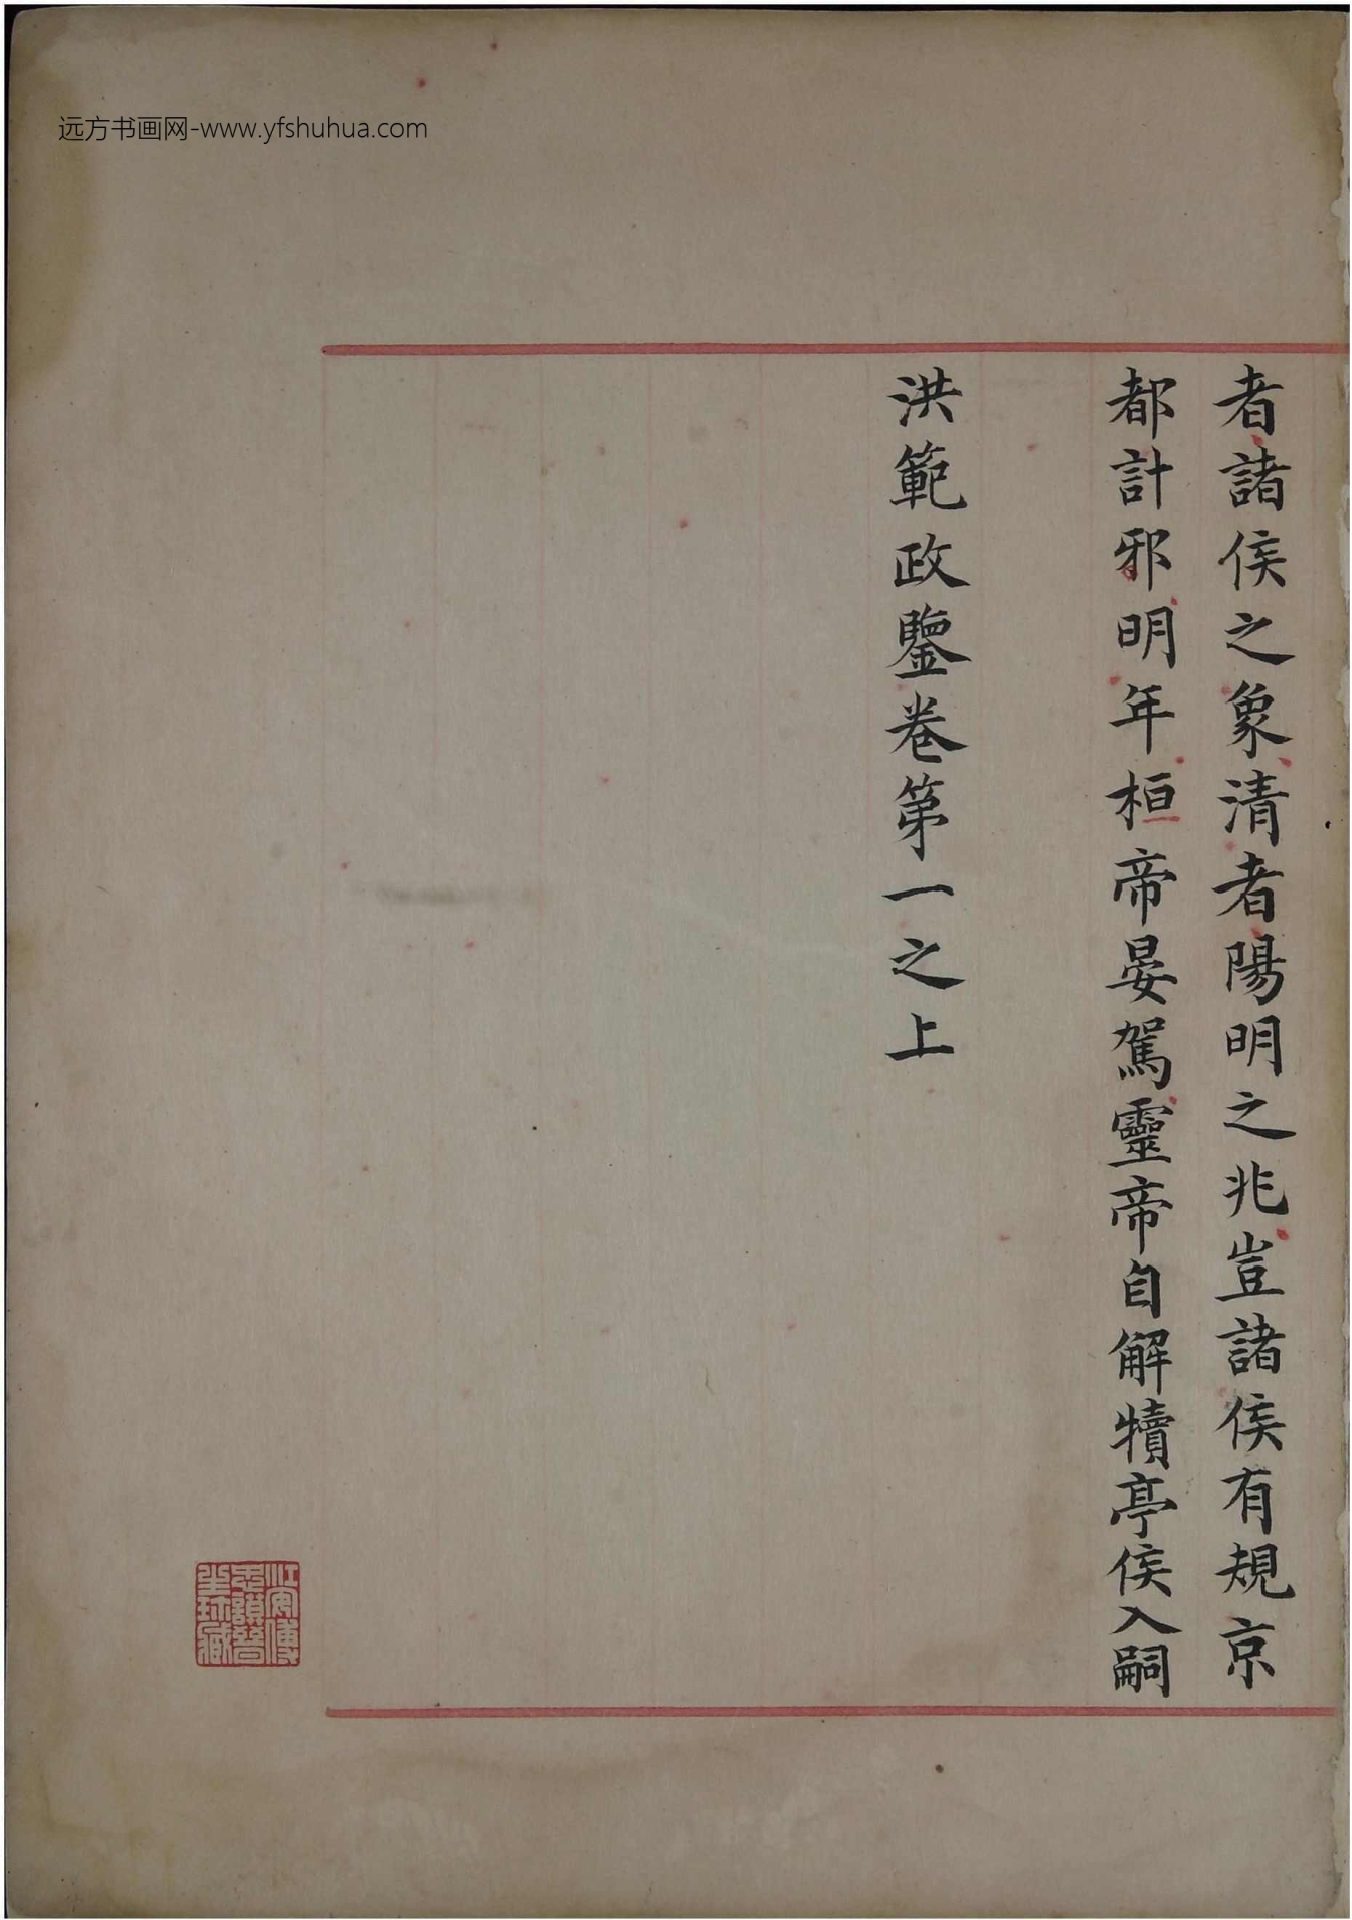 远方书画网-www.yfshuhua.com
者諸侯之象清者陽明之兆豈諸侯有規京
都計邪明年桓帝晏駕靈帝自解犢亭侯入嗣
洪範政鑒卷第一之上
江安傅
忠謨晉
生珍藏